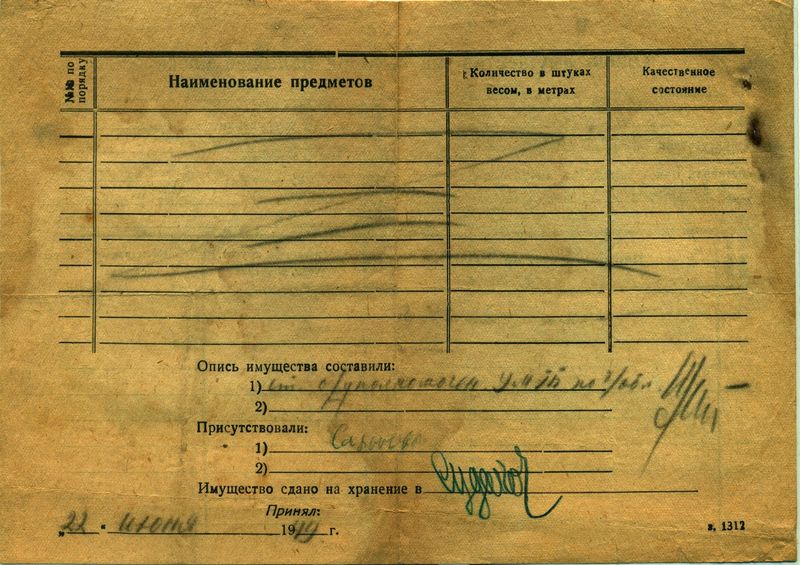 №№ по порядку
Наименование предметов
Количество в штуках весом, в метрах
Качественное состояние
Опись имущества составили:
1) ст.
2)
Присутствовали:
1)
2)
Имущество сдано на хранение в
Принял:
„22 " июня 1949 г.
з. 1312